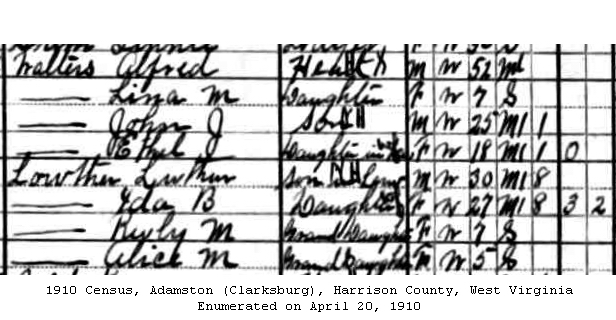 Walters Alfred Head M W 52
—— Lina M Daughter F W 7 S
—— John J Son M W 25 M1 1
—— Ethel Daughter in law F W 18 M1 1 0
Lowther Luther Son in law M W 30 M1 8
—— Ida B Daughter F W 27 M1 8 3 2
—— Ruby M Grand Daughter F W 7 S
—— Alice M Grand Daughter F W 5 S
1910 Census, Adamston (Clarksburg), Harrison County, West Virginia
Enumerated on April 20, 1910